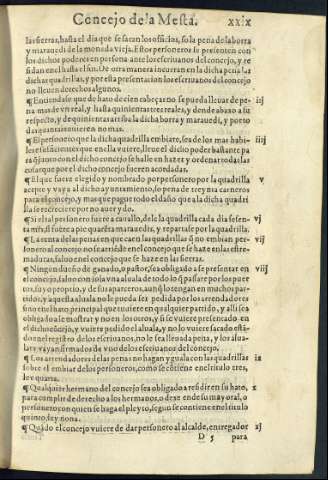 Concejo de la Mesta. xxix
las sierras, hasta el dia que se sacan los officios, so la pena de la borra
y marauedi de la moneda vieja. Estos personeros se presenten con
los dichos poderes en persona ante los escriuanos del concejo, y re
sidan en el hasta el fin. De otra manera incurran en la dicha pena las
dichas quadrillas, y por esta presentacion los escriuanos del concejo
no lleuen derechos algunos.
¶ Entiendase que de hato de cien cabeças no se pueda lleuar de pe- iij
na mas de vn real, y hasta quinientas tres reales, y dende abaxo a su
respecto, y de quinientas arriba la dicha borra y marauedi, y perro
das quantas uinieren no mas.
¶ El personero que la dicha quadrilla embiare, sea de los mas habi- iiij
les e suficientes que en ella vuiere, lleue el dicho poder bastante pa
ra q̃ junto en el dicho concejo se halle en hazer y ordenar todas las
cosas que por el dicho concejo fueren acordadas.
¶ El que fuere elegido y nombrado por personero por la quadrilla v
acepte y vaya al dicho ayuntamiento, so pena de treynta carneros
para el concejo, y mas que pague todo el daño que a la dicha quadri
lla se recreciere por no auer ydo.
¶ Si el tal personero fuere a cauallo, dele la quadrilla cada dia sesen- vj
ta mrs, si fuere a pie quarẽta marauedis, y repartase por la quadrilla.
¶ La renta delas penas en que caen las quadrillas q̃ no embian per- vij
sonero al concejo no se arriẽde en el concejo que se haze en los estre-
maderas, saluo en el concejo que se haze en las sierras.
¶ Ningun dueño de ganado, o pastor, sea obligado a se presentar en viij
el concejo, saluo con sola vna aluala de todo lo q̃ passare por los puer
tos, suyo o proprio, y de sus aparceros, aunq̃ lo tengan en muchos par-
tidos, y aquesta aluala no le pueda ser pedida por los arrendadores
sino en el hato principal que tuuiere en qualquier partido, y alli sea
obligado a se mostrar y no en los otros, y si se vuiere presentado en
el dicho cõcejo, y vuiere pedido el aluala, y no lo vuiere sacado està-
do en el registro delos escriuanos, no le sea lleuada pena, y los alua-
laes vayan firmados de vno de los escriuanos del concejo.
¶ Los arrendadores de las penas no hagan yguala con las quadrillas ix
sobre el embiar delos personeros, como se cõtiene en el titulo tres,
ley quarta.
¶ Qualquier hermano del concejo sea obligado a residir en su hato, x
para cumplir de derecho a los hermanos, o dexe ende su mayoral, o
personero con quien se haga el pleyto, segun se contiene en el titulo
quinto, ley nona.
¶ Quãdo el concejo vuiere de dar personero al alcalde, entregador xj
D 5 para